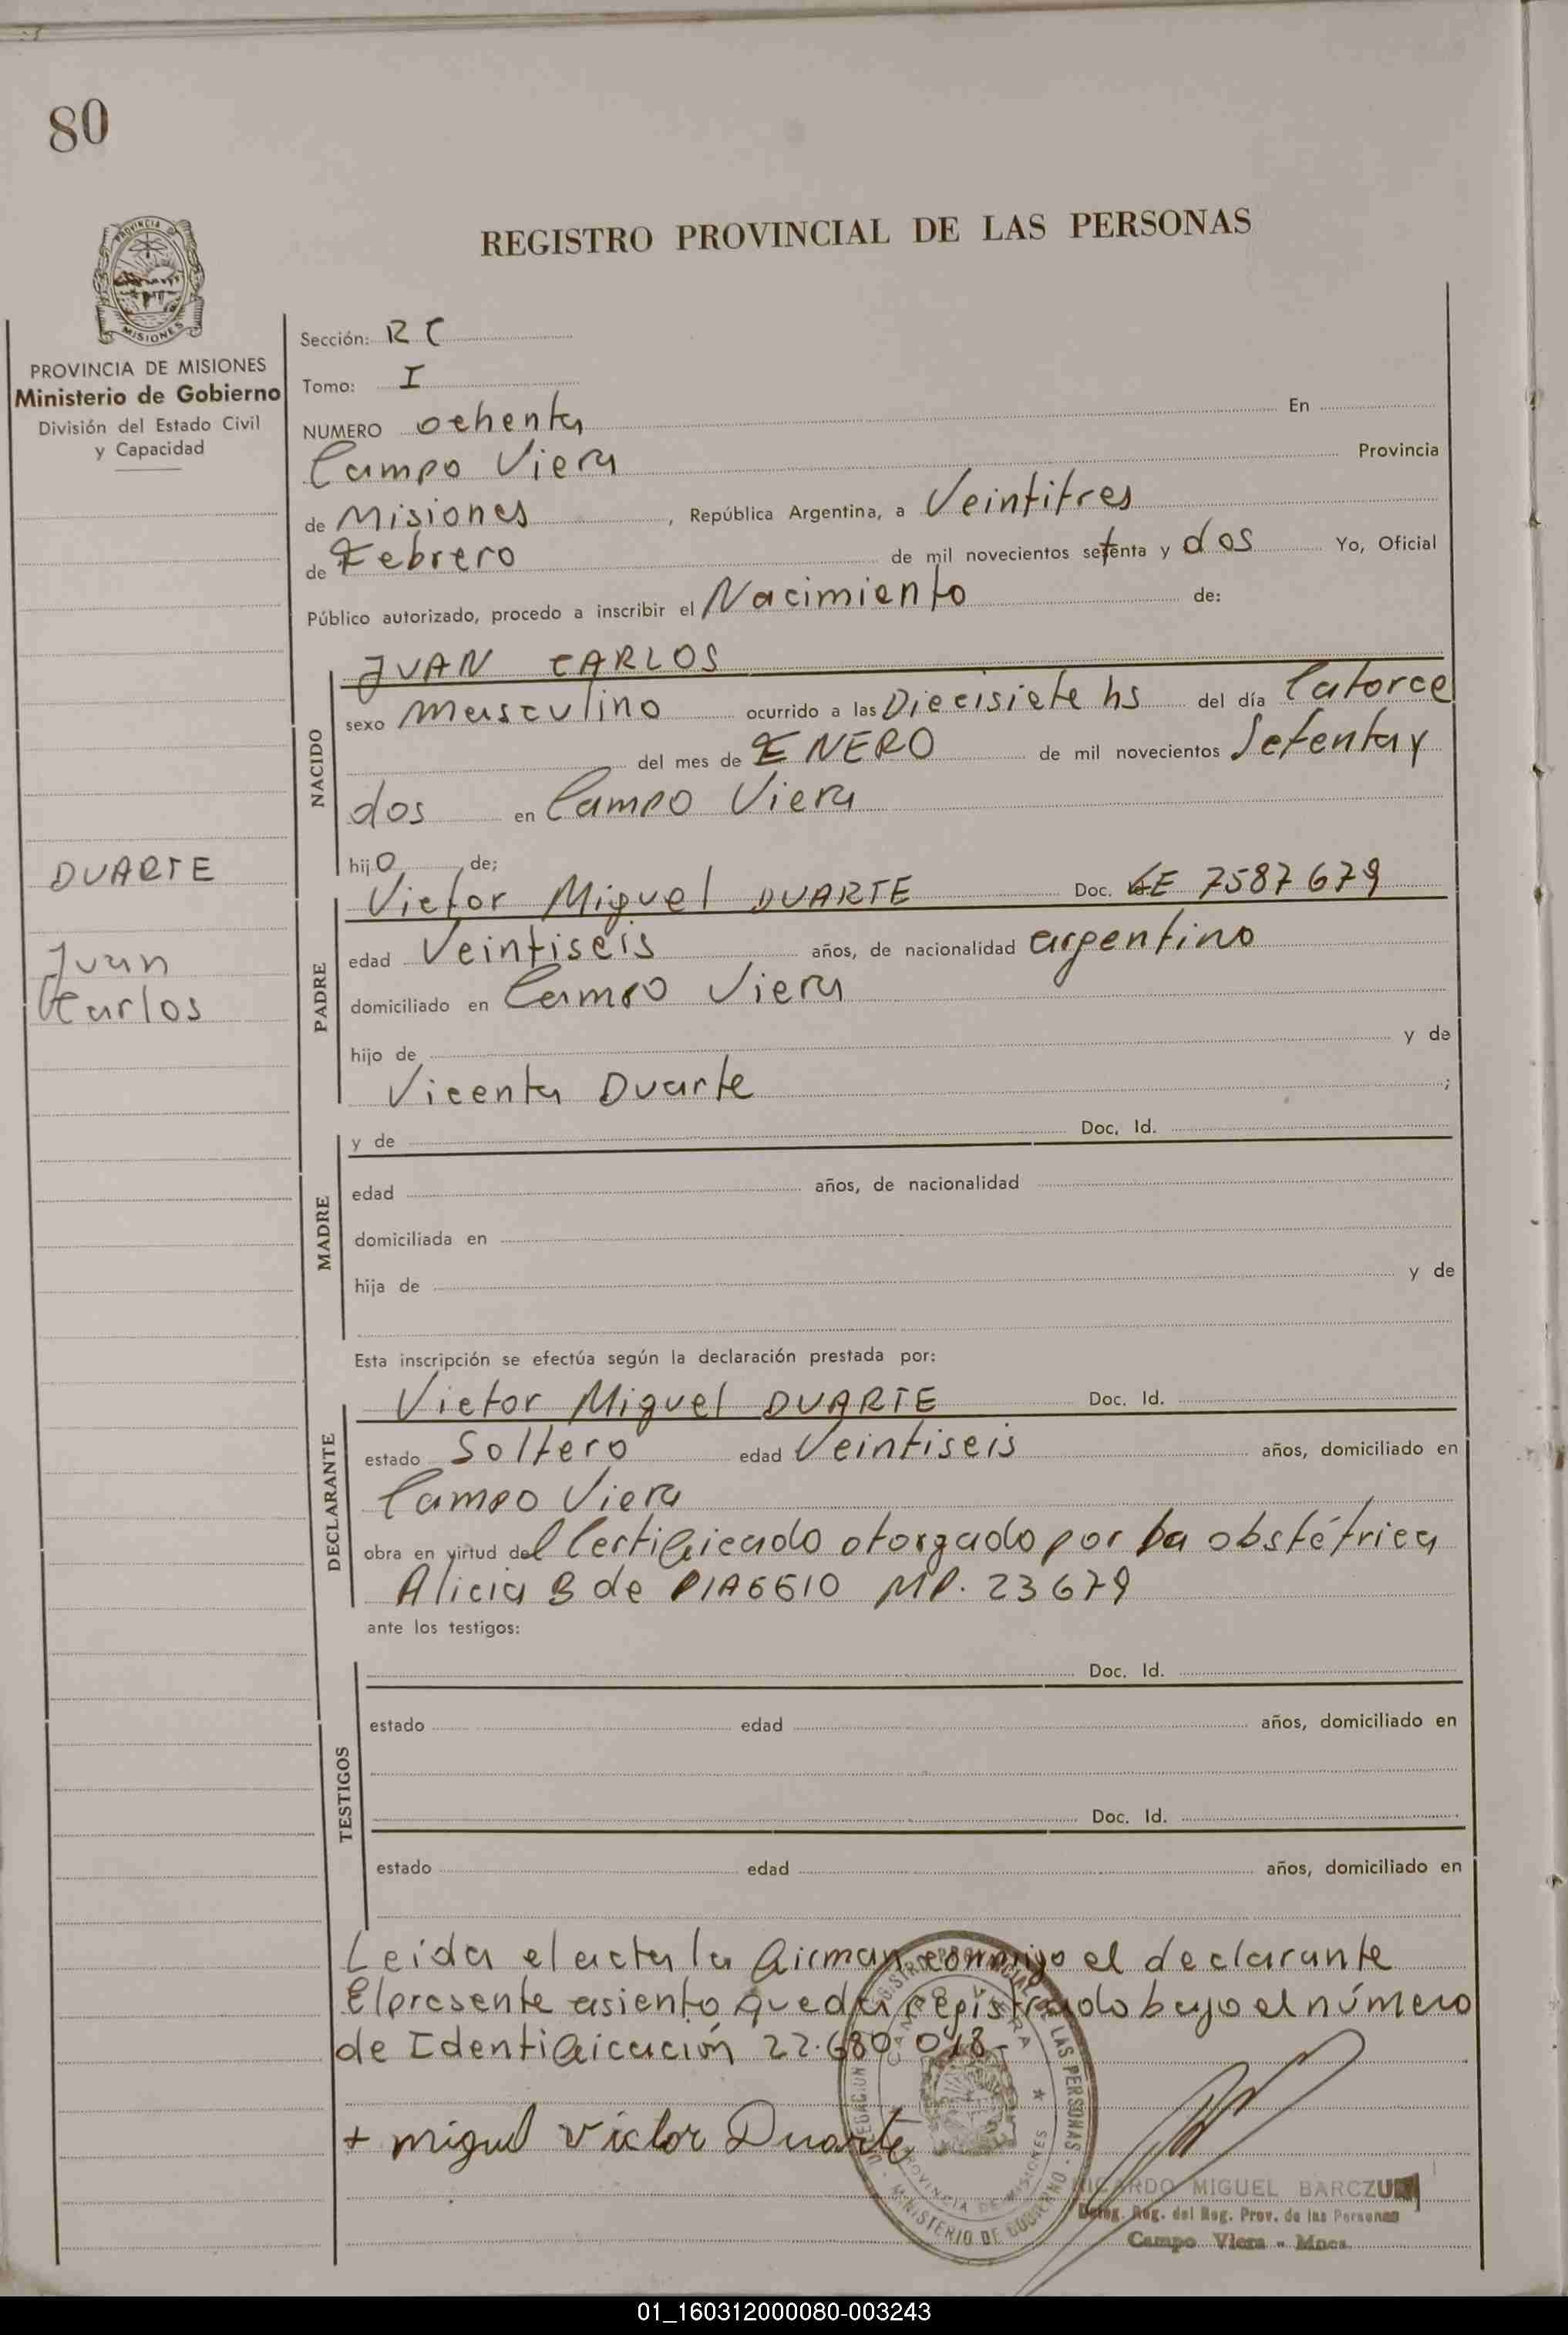 80
REGISTRO PROVINCIAL DE LAS PERSONAS
PROVINCIA DE
MISIONES
PROVINCIA DE MISIONES
Ministerio de Gobierno
División del Estado Civil
y Capacidad
Sección: RC
Tomo: I
NUMERO ochenta En
Campo Viera Provincia
de Misiones , República Argentina, a Veintitres
de Febrero de mil novecientos setenta y dos Yo, Oficial
Público autorizado, procedo a inscribir el Nacimiento de:
NACIDO
JUAN CARLOS
sexo masculino ocurrido a las Diecisiete hs del día Catorce
del mes de ENERO de mil novecientos Setenta y
dos en Campo Viera
hijo de;
DUARTE
Juan
Carlos
PADRE
Victor Miguel DUARTE Doc. LE 7587679
edad Veintiseis años, de nacionalidad argentino
domiciliado en Campo Viera
hijo de y de
Vicenta Duarte ;
MADRE
y de Doc. Id.
edad años, de nacionalidad
domiciliada en
hija de y de
Esta inscripción se efectúa según la declaración prestada por:
DECLARANTE
Victor Miguel DUARTE Doc. Id.
estado Soltero edad Veintiseis años, domiciliado en
Campo Viera
obra en virtud del Certificado otorgado por la obstétrica
Alicia B de PIAGGIO MP. 23679
ante los testigos:
TESTIGOS
Doc. Id.
estado edad años, domiciliado en
Doc. Id.
estado edad años, domiciliado en
Leida el acta la firman conmigo el declarante
El presente asiento queda registrado bajo el número
de Identificación 22.680.018-
+ Miguel Victor Duarte
REGISTRO PROVINCIAL DE LAS PERSONAS - MINISTERIO DE GOBIERNO
CAMPO VIERA
PROVINCIA DE MISIONES
RICARDO MIGUEL
Deleg. Reg. del Reg. Prov. de las Personas
Campo Viera - Mnes.
01_160312000080-003243